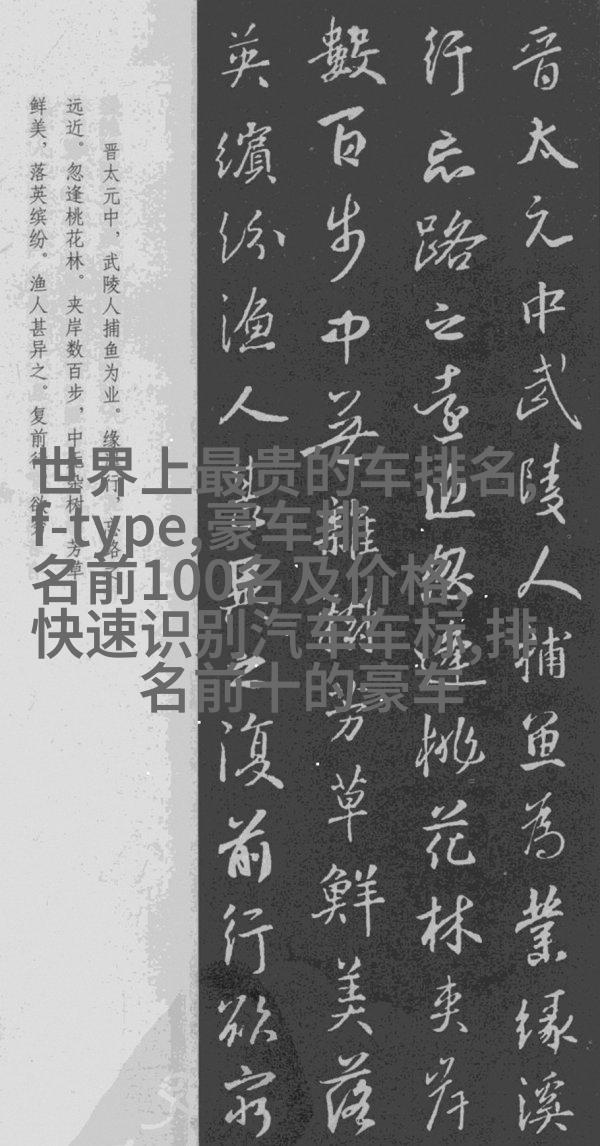 晋太元中武陵人捕魚為業緣溪
行忘路之遠近忽逢桃花林夾岸
數百步中無雜樹芳草鮮美落
英繽紛漁人甚異之復前行欲窮
晋太元中，武陵人捕鱼为业。缘溪行，忘路之
远近。忽逢桃花林。夹岸数百步，中无杂树，芳草
鲜美，落英缤纷。渔人甚异之。复前行，欲穷
世界上最贵的车排名
f-type,豪车排
名前100名及价格,
快速识别汽车车标,排
名前十的豪车